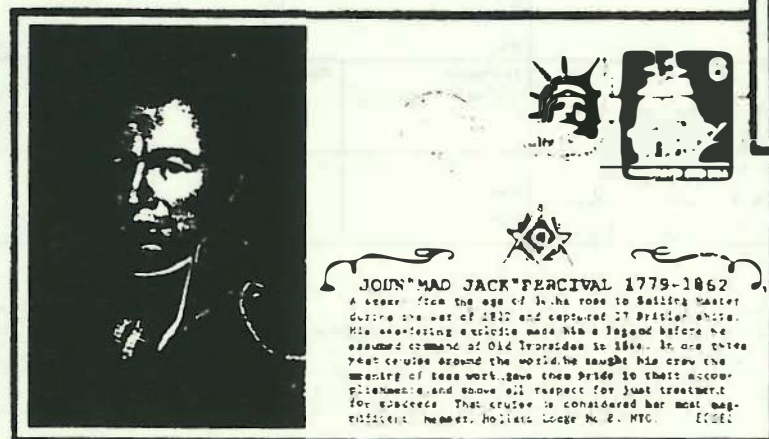 6
JOHN "MAD JACK" PERCIVAL 1779-1862
A from the age of he rose to Sailing Master
during the war of 1812 and captured 27 British ships.
His seafaring exploits made him a legend before he
assumed command of Old Ironsides in In one three
year cruise around the world, he taught his crew the
meaning of team work, gave them pride in their accom-
plishments, and above all respect for just treatment
for misdeeds. That cruise is considered her most mag-
nificent. Member, Holland Lodge No 8, NYC.